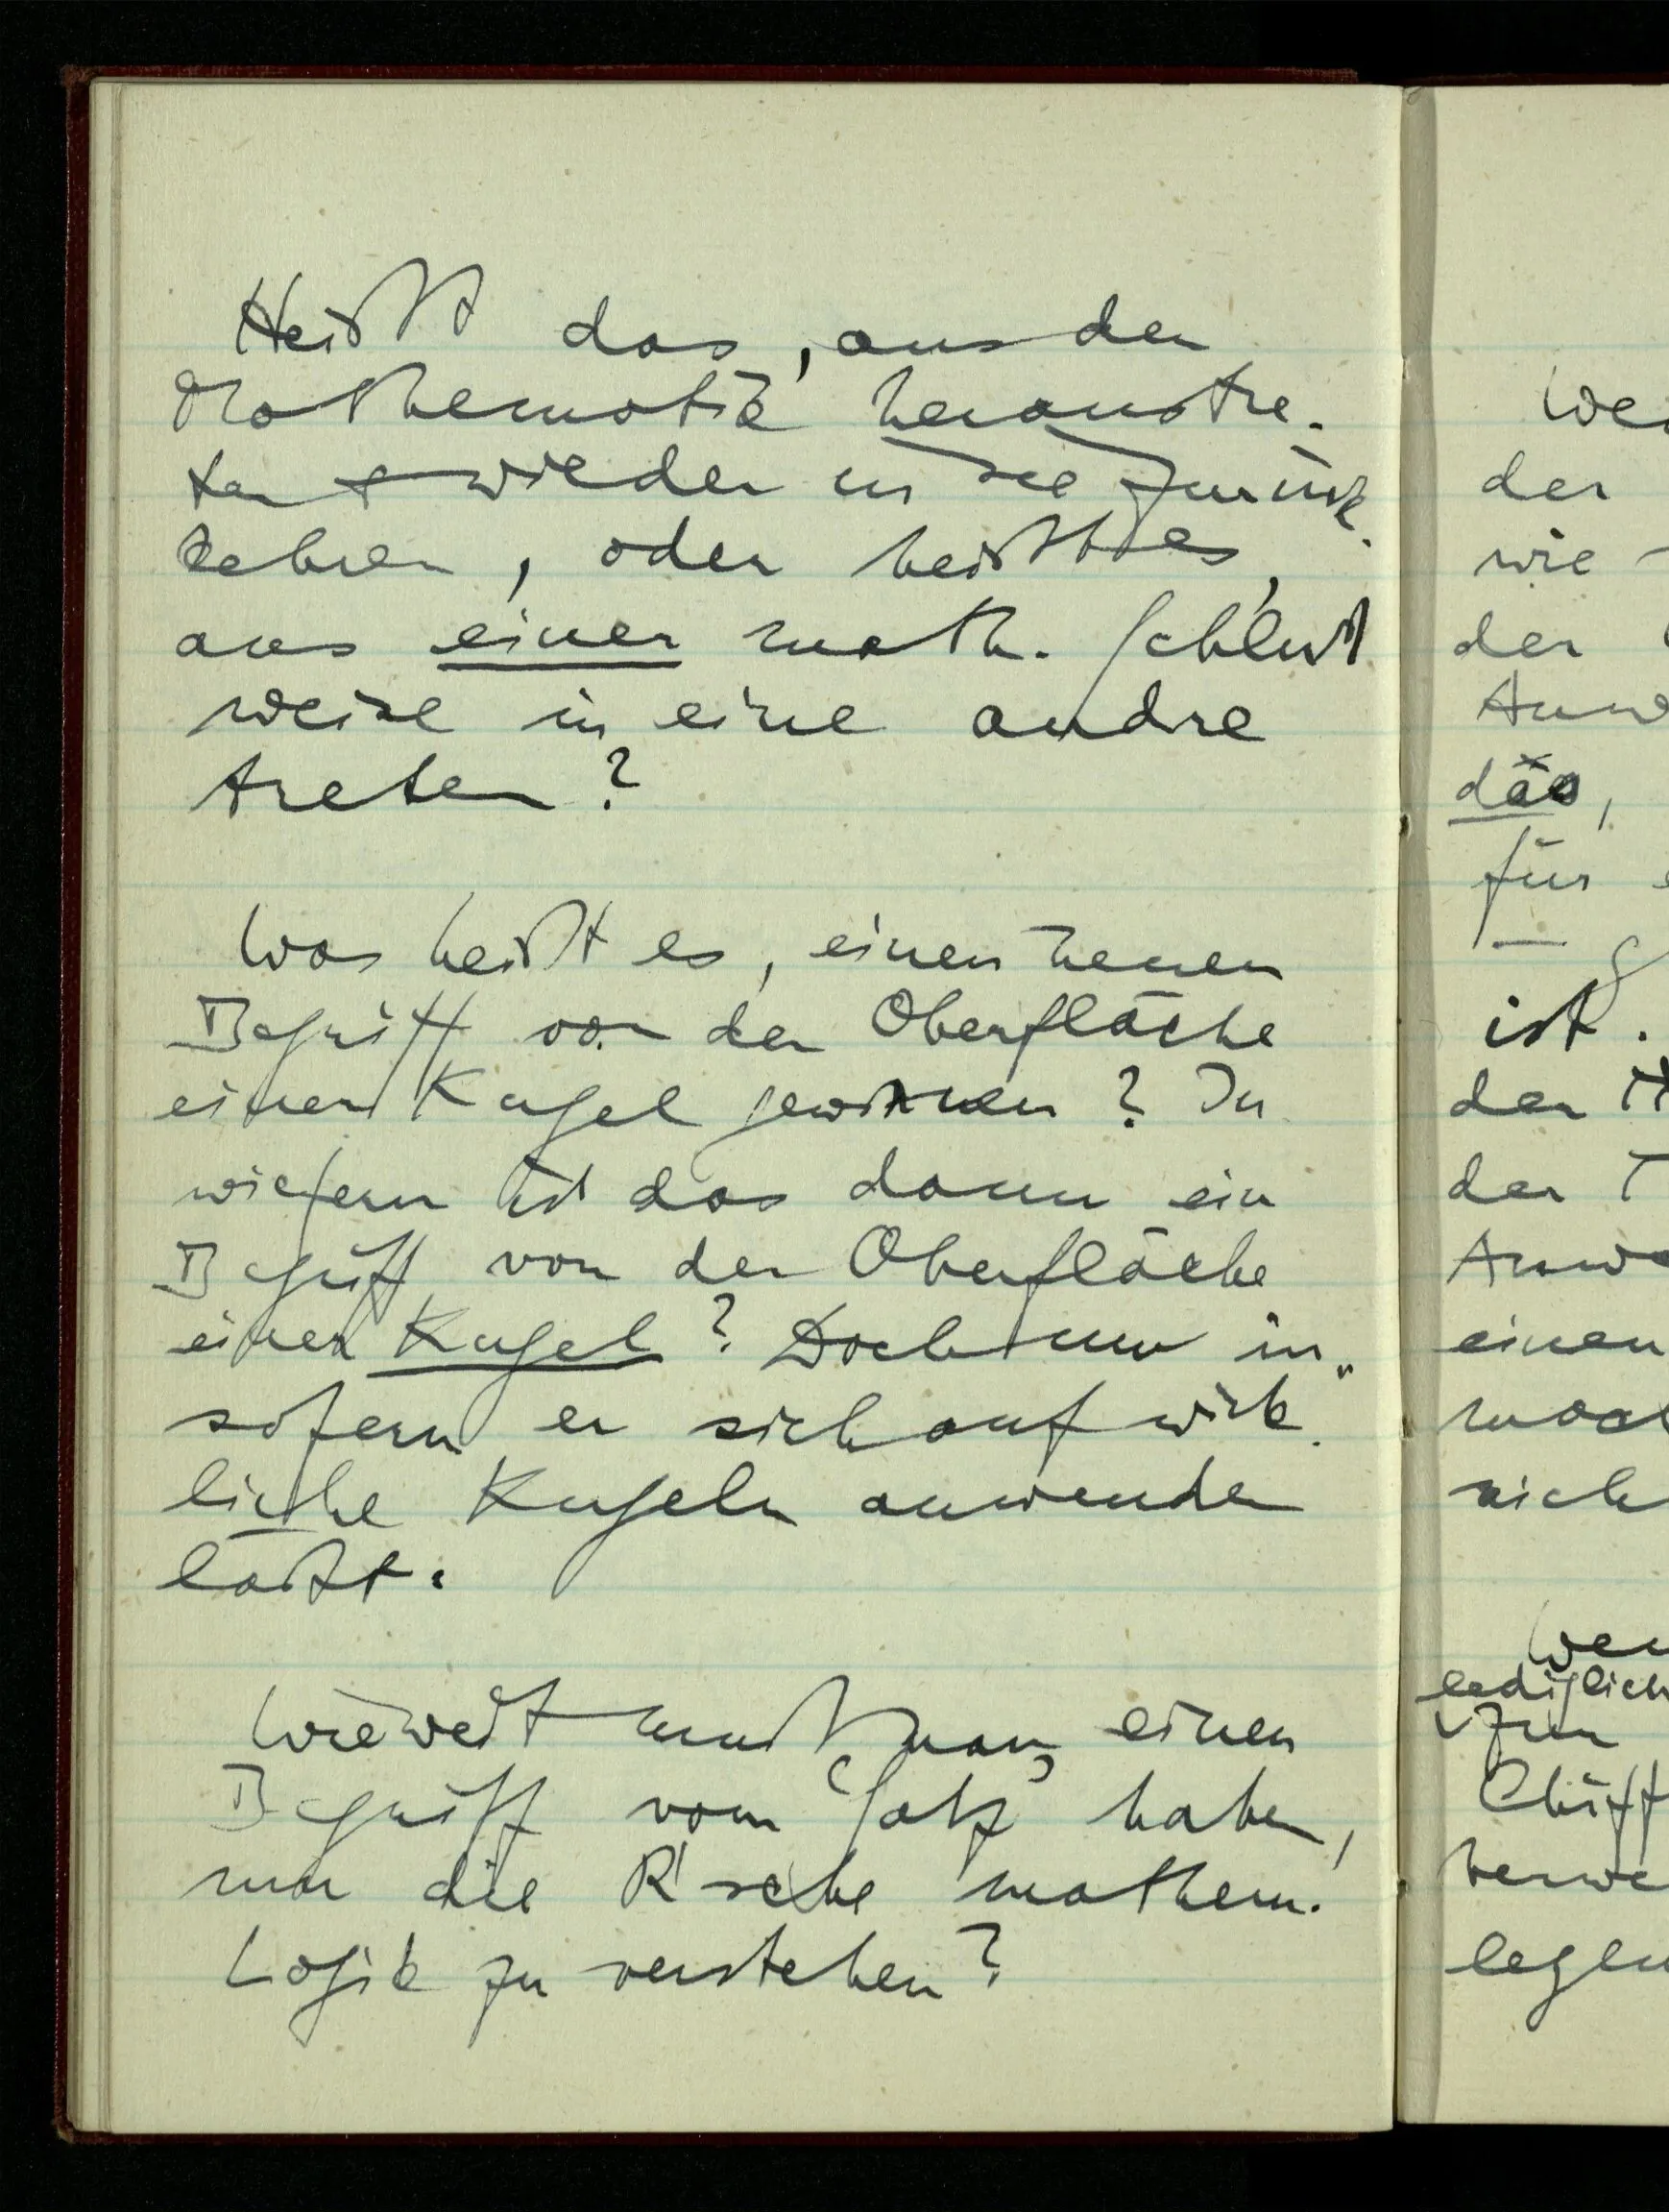 Heißt das, aus der
Mathematik heraustre-
ten & wieder in sie zurück-
kehren, oder heißt es,
aus einer math. Schluß
weise in eine andre
treten?
Was heißt es, einen neuen
Begriff von der Oberfläche
einer Kugel gewinnen? In
wiefern ist das dann ein
Begriff von der Oberfläche
einer Kugel? Doch nur in„
sofern er sich auf wirk-
liche Kugeln anwenden
läßt.
Wieweit muß man einen
Begriff vom ‘Satz’ haben,
um die R'sche mathem.
Logik zu verstehen?
der
wie
der
das,
für
ist.
der
der
einen
lediglich
zur